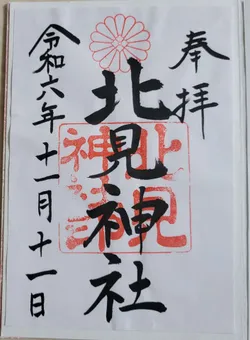 奉拝
北見神社
北見神社
令和六年十一月十一日